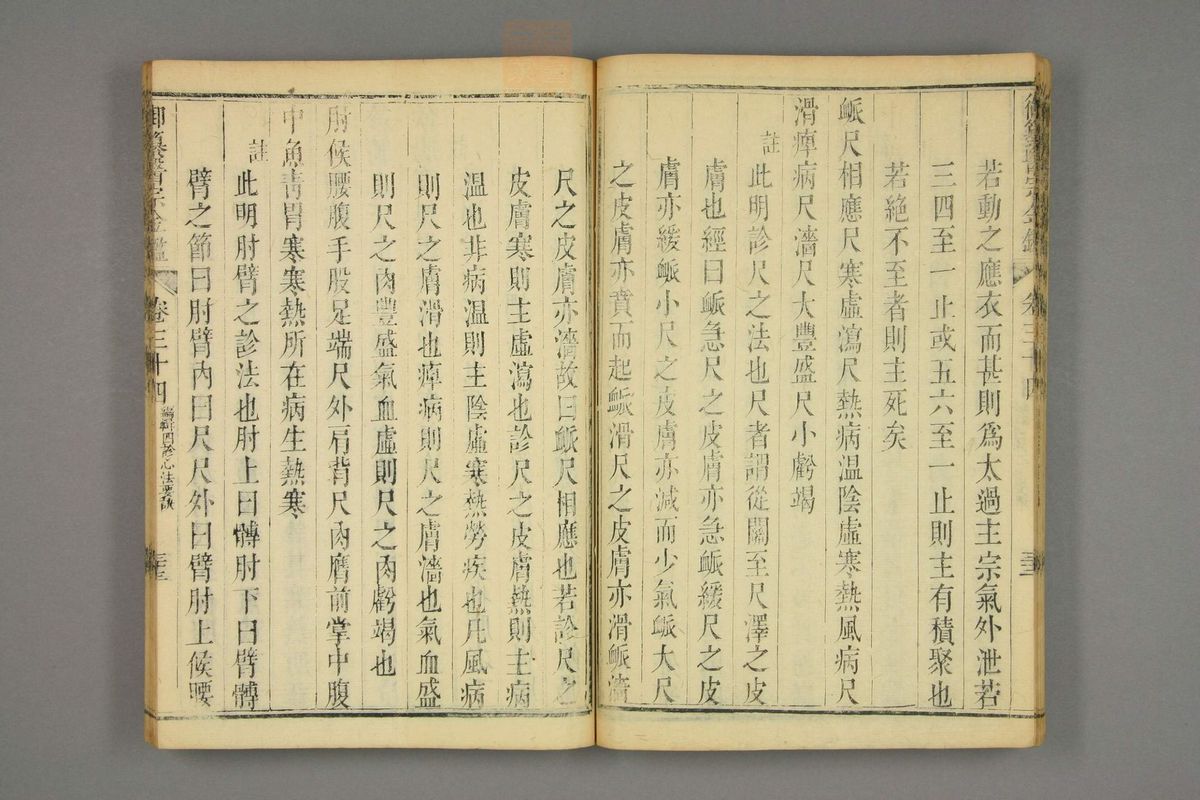 若動之應衣而甚則爲太過主宗氣外泄若
三四至一止或五六至一止則主有積聚也
若絕不至者則主死矣
䘑尺相應尺寒虛瀉尺熱病温陰虛寒熱風病尺
滑痺病尺濇尺大豐盛尺小虧竭
註
此明診尺之法也尺者謂從關至尺澤之皮
膚也經曰䘑急尺之皮膚亦急䘑緩尺之皮
膚亦緩䘑小尺之皮膚亦減而少氣䘑大尺
之皮膚亦賁而起䘑滑尺之皮膚亦滑䘑濇
尺之皮膚亦濇故曰䘑尺相應也若診尺之
皮膚寒則主虛瀉也診尺之皮膚熱則主病
温也非病温則主陰虛寒熱勞疾也凡風病
則尺之膚滑也痺病則尺之膚濇也氣血盛
則尺之肉豐盛氣血虛則尺之肉虧竭也
肘候腰腹手股足端尺外肩背尺內膺前掌中腹
中魚青胃寒寒熱所在病生熱寒
註
此明肘臂之診法也肘上曰髆肘下曰臂髆
臂之節曰肘臂內曰尺尺外曰臂肘上候腰
御纂醫宗金鑑
卷三十四
編輯四診心法要訣